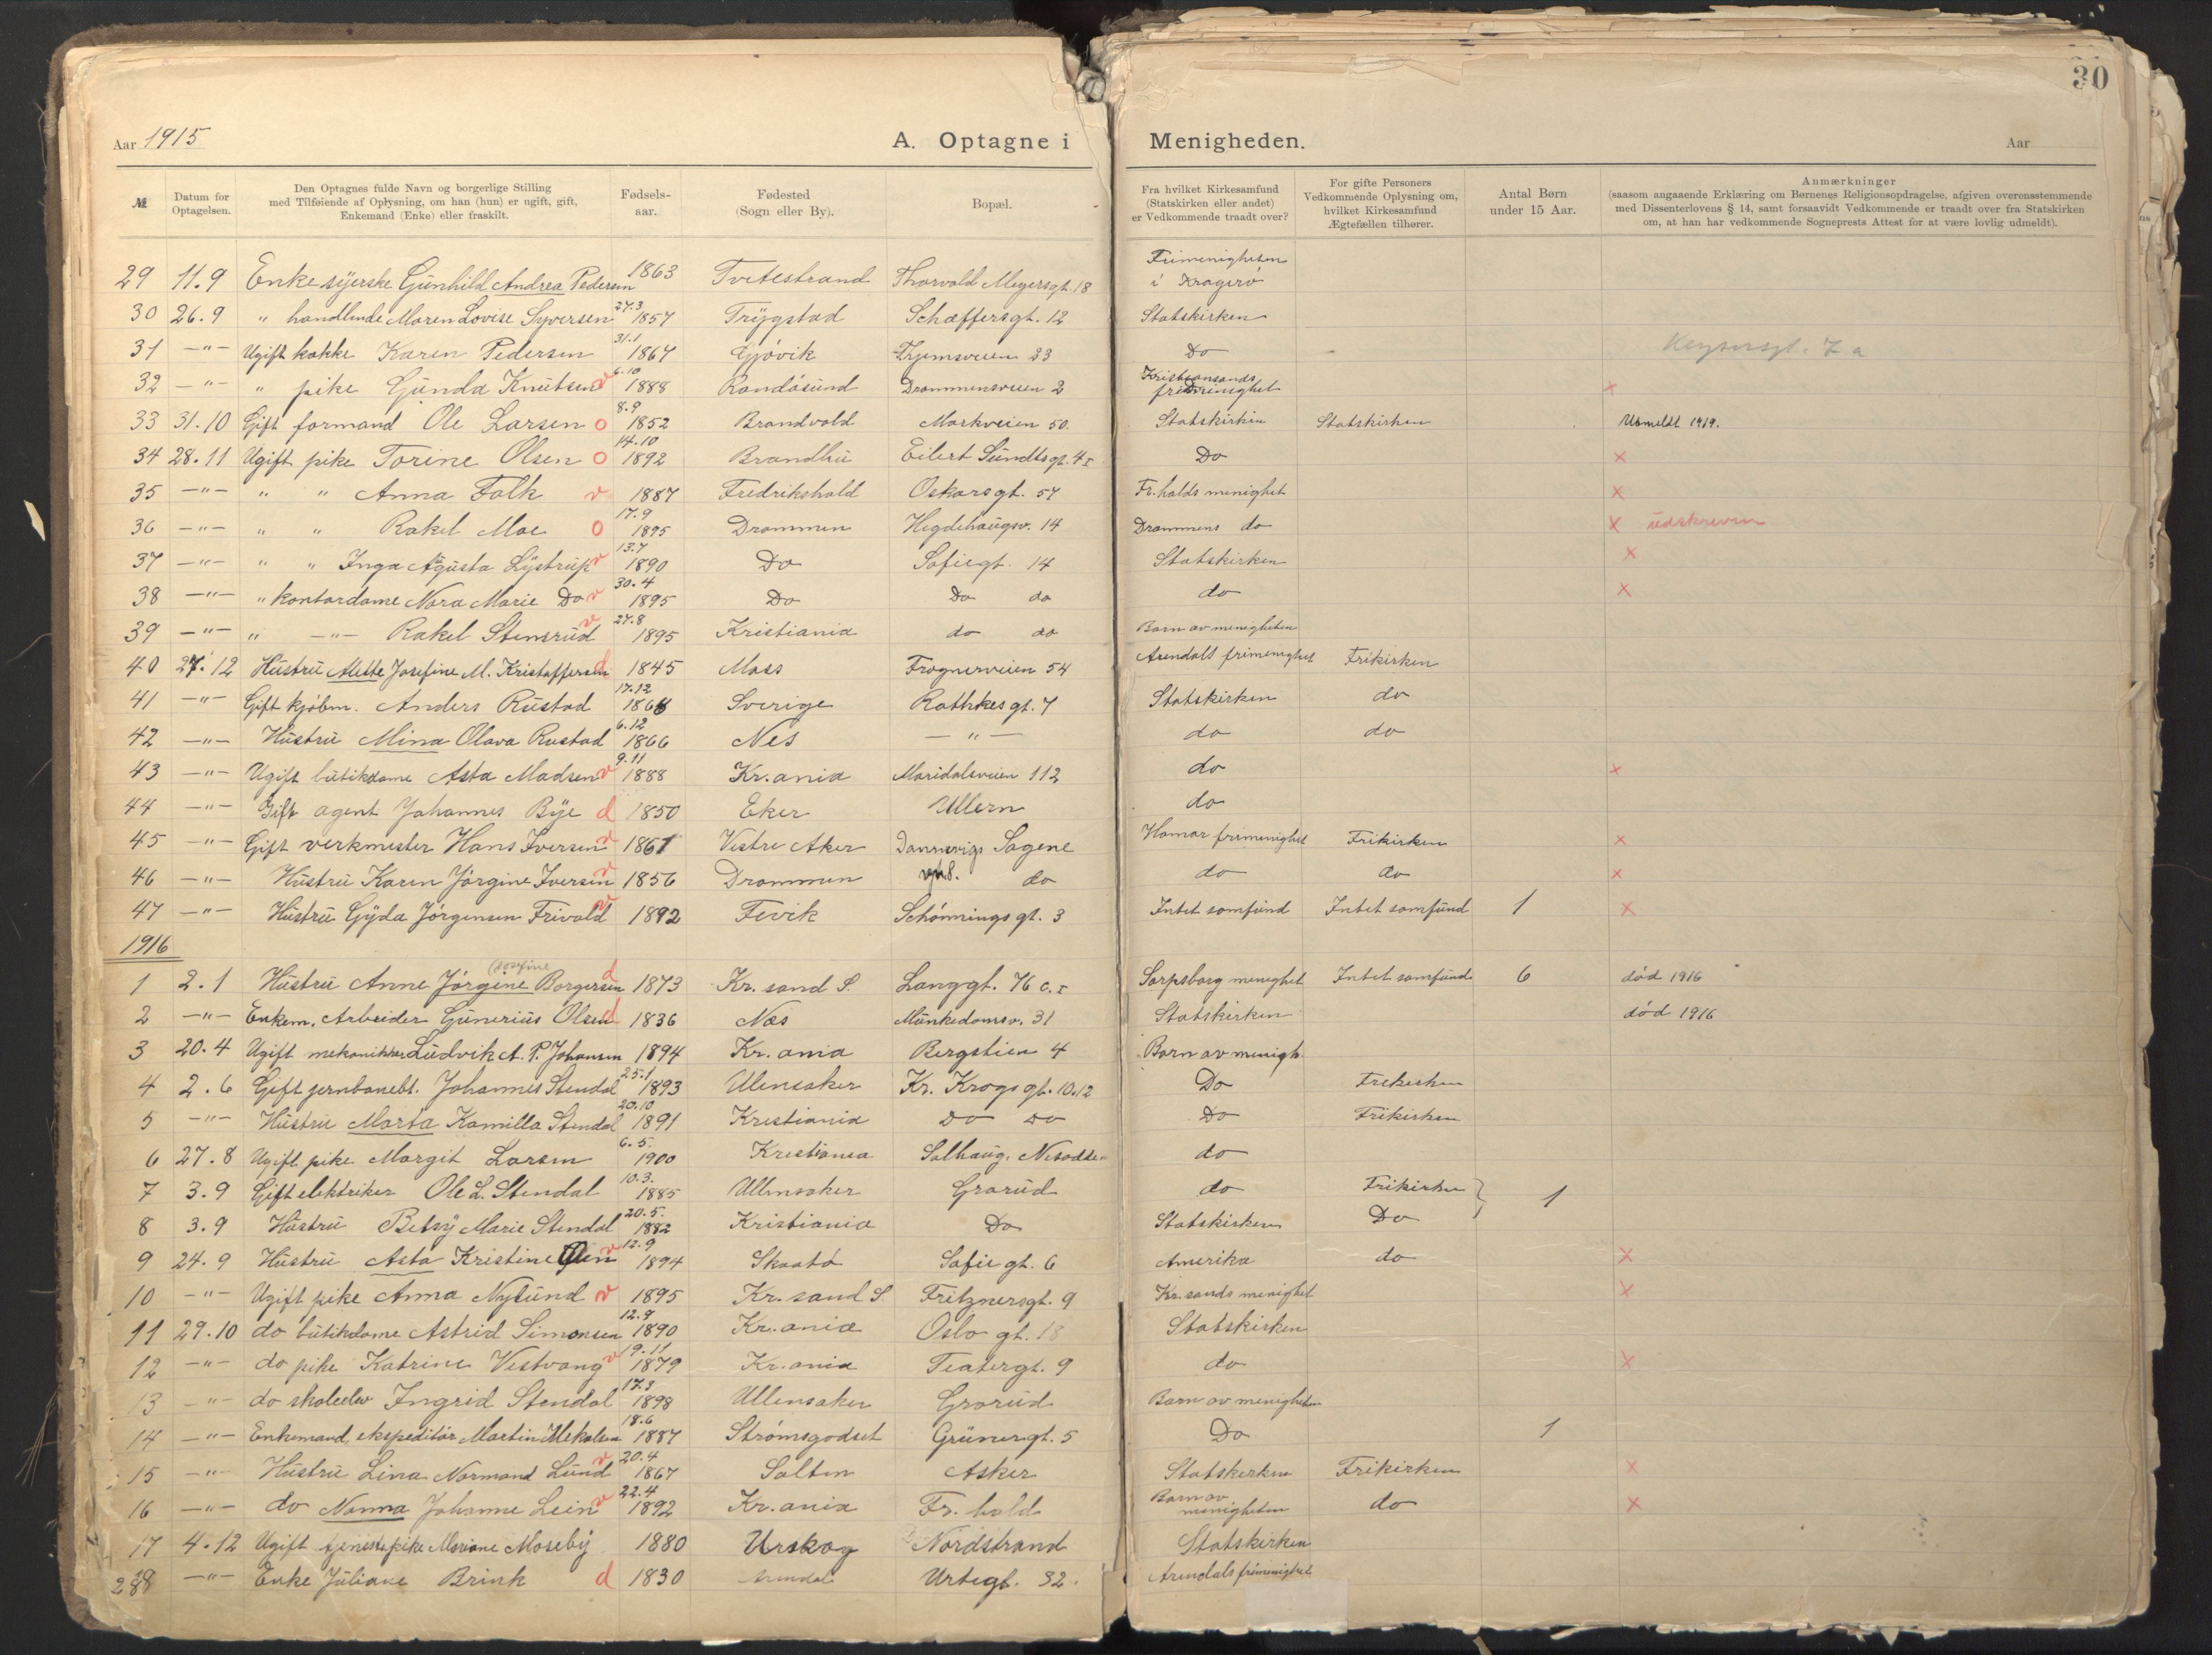 30
Aar 1915 A. Optagne i Menigheden. Aar
№ Datum for Optagelsen. Den Optagnes fulde Navn og borgerlige Stilling med Tilføiende af Oplysning, om han (hun) er ugift, gift, Enkemand (Enke) eller fraskilt. Fødsels-aar. Fødested (Sogn eller By). Bopæl. Fra hvilket Kirkesamfund (Statskirken eller andet) er Vedkommende traadt over? For gifte Personers Vedkommende Oplysning om, hvilket Kirkesamfund Ægtefællen tilhører. Antal Børn under 15 Aar. Anmærkninger (saasom angaaende Erklæring om Børnenes Religionsopdragelse, afgiven overensstemmende med Dissenterlovens § 14, samt forsaavidt Vedkommende er traadt over fra Statskirken om, at han har vedkommende Sogneprests Attest for at være lovlig udmeldt).
29 11.9 Enke syerske Gunhild Andrea Pedersen 1863 Tvetestrand Thorvald Meyersgt. 18 Frimenigheten i Kragerø
30 26.9 " handlende Maren Lovise Syversen 27.3 1857 Trygstad Schæffersgt. 12 Statskirken
31 -"- Ugift kokke Karen Pedersen 31.1 1867 Gjøvik 23 Do Keysersgt. 7 a
32 -"- " pike Gunda Knutsen v 6.10 1888 Randøsund Drammensveien 2 Kristiansands frimenighet x
33 31.10 Gift formand Ole Larsen o 8.9 1852 Brandvold Markveien 50. Statskirken Statskirken Utmeldt 1919.
34 28.11 Ugift pike Torine Olsen o 14.10 1892 Brandbu Eilert Sundtsgt. 4 I Do x
35 -"- " " Anna Falk v 1887 Fredrikshald Oskarsgt. 57 Fr.halds menighet x
36 -"- " " Rakel Moe o 17.9 1895 Drammen Hegdehaugsv. 14 Drammens do x udskreven
37 -"- " " Inga Agusta Lystrup v 13.7 1890 Do Sofiegt. 14 Statskirken x
38 -"- " kontordame Nora Marie Do v 30.4 1895 Do Do do do x
39 -"- " -"- Rakel Stensrud v 27.8 1895 Kristiania do do Barn av menigheten
40 27.12 Hustru Mette Josefine M. Kristoffersen d 1845 Moss Frognerveien 54 Arendals frimenighet Frikirken
41 -"- Gift kjøbm. Anders Rustad 17.12 1868 Sverige Rathkesgt. 7 Statskirken do
42 -"- Hustru Mina Olava Rustad 6.12 1866 Nes -"- do do
43 -"- Ugift butikdame Asta Madsen v 9.11 1888 Kr.ania Maridalsveien 112 do x
44 -"- Gift agent Johannes Bye d 1850 Eker Ullern do
45 -"- Gift verkmester Hans Iversen v 1861 Vestre Aker Dannevigs Sagene Hamar frimenighet Frikirken x
46 -"- Hustru Karen Jørgine Iversen v 1856 Drammen v. 8. do do do x
47 -"- Hustru Gyda Jørgensen Frivold v 1892 Fevik Schønningsgt. 3 Intet samfund Intet samfund 1 x
1916
1 2.1 Hustru Anne Jørgine (Josefine Borgersen d 1873 Kr.sand S. Langgt. 76 c. I Sarpsborg menighet Intet samfund 6 død 1916
2 -"- Enkem. Arbeider Gunerius Olsen d 1836 Næs Munkedamsv. 31 Statskirken død 1916
3 20.4 Ugift mekaniker Ludvik A. P. Johansen 1894 Kr.ania Bergstien 4 Barn av menigh.
4 2.6 Gift jernbanebt. Johannes Stendal 25.1 1893 Ullensaker Kr. Krogsgt. 10.12 Do Frikirken
5 -"- Hustru Marta Kamilla Stendal 20.10 1891 Kristiania Do Do Do Frikirken
6 27.8 Ugift pike Margit Larsen 6.5. 1900 Kristiania Solhaug, Nesodden do
7 3.9 Gift elektriker Ole L. Stendal 10.3. 1885 Ullensaker Grorud do Frikirken } 1
8 3.9 Hustru Betsy Marie Stendal 20.5. 1882 Kristiania Do Statskirken Do
9 24.9 Hustru Asta Kristine v 12.9 1894 Skaatø Sofiegt. 6 Amerika do x
10 -"- Ugift pike Anna Nylund v 1895 Kr.sand S. Fritznersgt. 9 Kr.sands menighet x
11 29.10 do butikdame Astrid Simonsen 12.9 1890 Kr.ania Oslo gt. 18 Statskirken
12 -"- do pike Katrine Vestvang v 19.11 1879 Kr.ania Teatergt. 9 do x
13 -"- do skoleelev Ingrid Stendal 17.3 1898 Ullensaker Grorud Barn av menigheten
14 -"- Enkemand, ekspeditør Martin Mikalsen 18.6 1887 Strømsgodset Grünersgt. 5 Do 1
15 -"- Hustru Lina Normand Lund v 20.4 1867 Salten Asker Statskirken Frikirken x
16 -"- do Nanna Johanne Lein v 22.4 1892 Kr.ania Fr.hald Barn av menigheten do x
17 4.12 Ugift tjenestepike Mariane Moseby 1880 Urskog Nordstrand Statskirken
18 -"- Enke Juliane Brink d 1830 Arendal Urtegt. 32. Arendals frimenighet